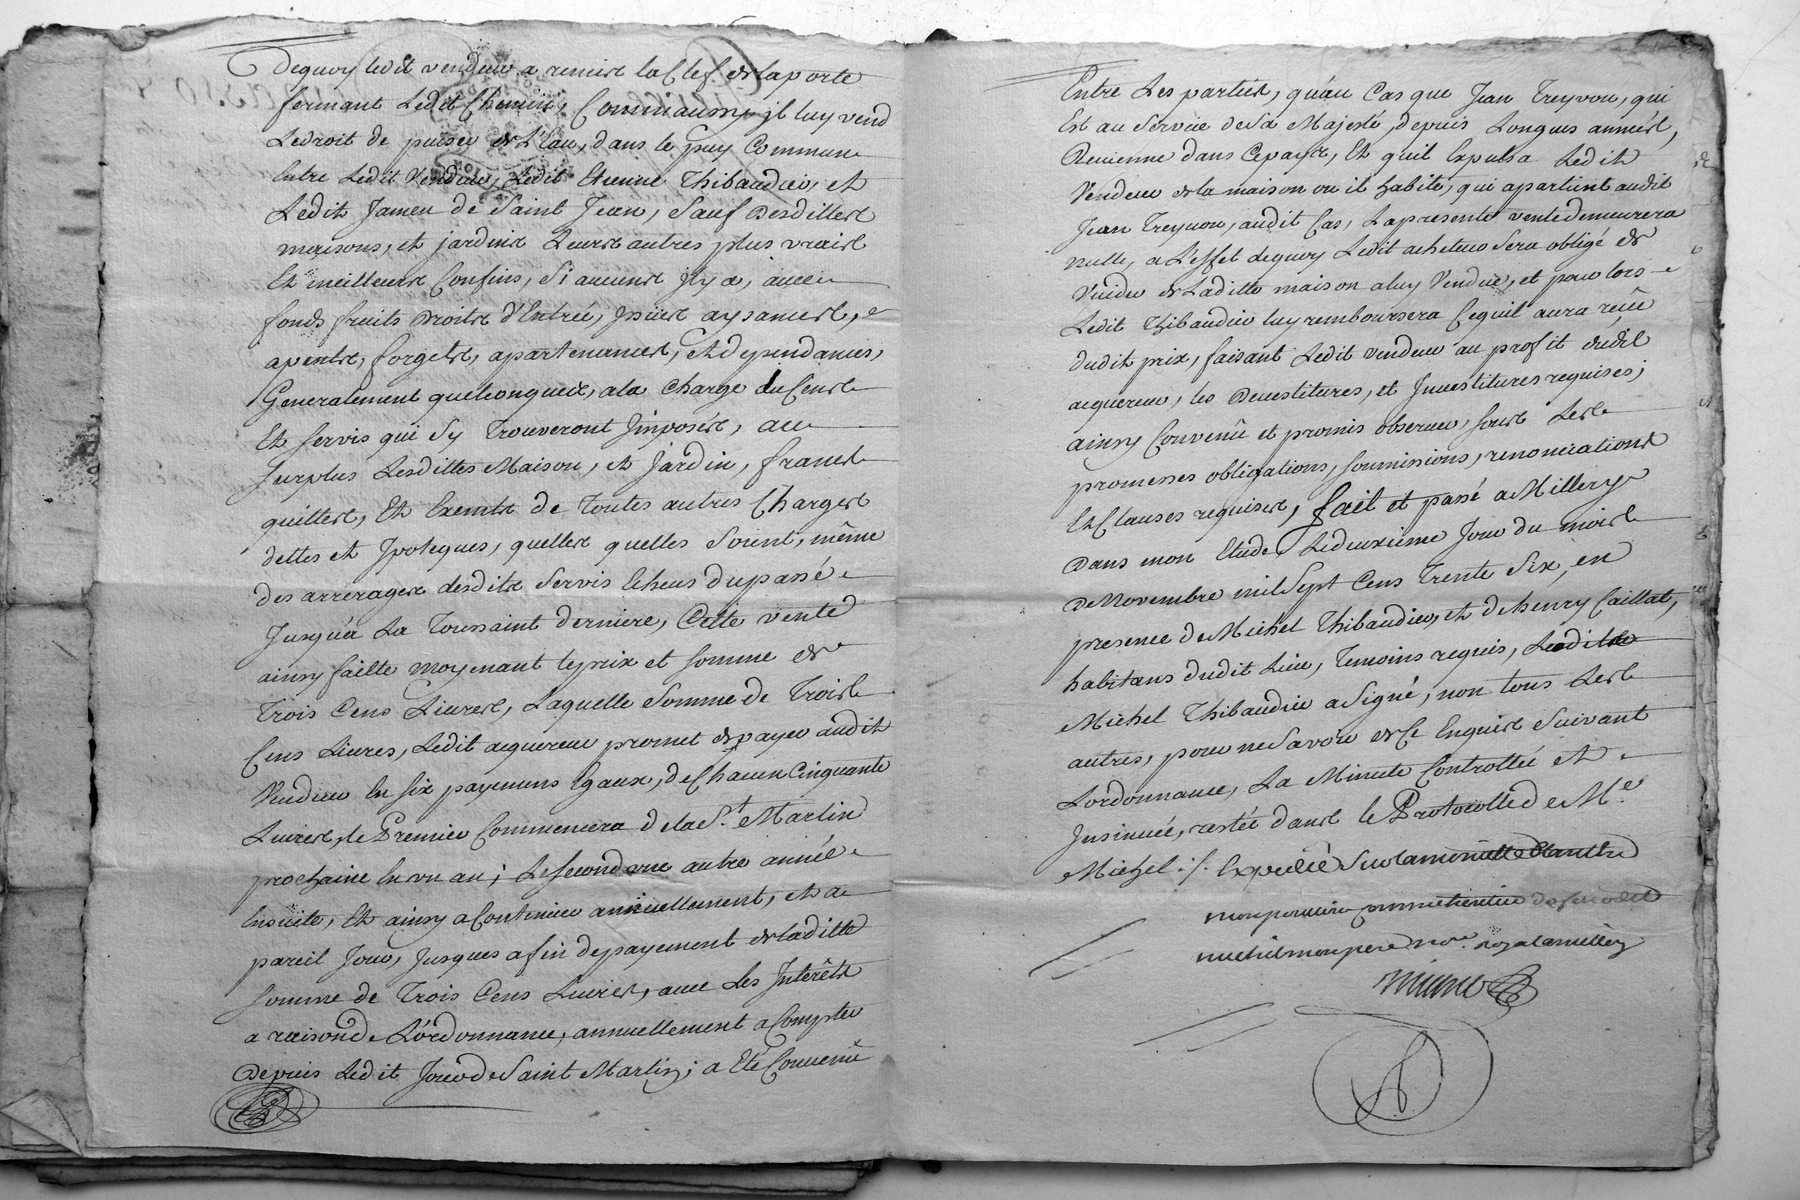 Dequoy ledit vendeur a remist la Clef de la porte
fermant Ledit Chemin, Commaussy jl luy vend
Ledroit de puiser de L'Eau, dans le puy Commun
Entre Ledit Vendeur, Ledit Etienne Thibaudier, et
Ledit Jamen de Saint Jean, Sauf Desdittest
maisons, et jardins Leurst autres plus vraist
Et meilleurst Confins, Si aucunst jly a, avec
fonds fruits Droitst d'Entrée, jssüest aysancest,
apentst, forgetst, apartenancest, et dependances,
Generalement quelconquest, ala Charge du Censt
Et Servis qui Sy Trouveront Jmposést, au
Surplus Lesdittes Maison, et Jardin, francst
quittest, Et Exemtst de Toutes autres Chargest
dettes et Jpoteques, quellest quelles Soient, même
des arreragest desditst Servis Echeus dupassé
Jusqu'a La Toussaint derniere, Cette vente
ainsy faitte moyenant leprix et Somme de
Trois Cens Livrest, Laquelle Somme de Troist
Cens Livres, Ledit acquereur promet de payer audit
Vendeur En Six payemens Egaux, de Chacun Cinquante
Livrest, le Premier Commencera de la St. Martin
prochaine En un an; Le Second une autre année
Ensuite, Et ainsy a Continuer annuellement, et a
pareil Jour, Jusques afin depayement de laditte
Somme de Trois Cens Livrest, avec les Jnterêtst
a raison de L'ordonnance, annuellement a Compter
Depuis Ledit Jour de Saint Martin; a Eté Convenû
Entre Les partiest, qu'au Cas que Jean Treyvou, qui
Est au Service de Sa Majesté, depuis Longues annéest,
Revienne dans Cepayst, Et quil Expulsa Ledit
Vendeur de la maison ou il habite, qui apartient audit
Jean Treyvou, audit Cas, La presente vente demeurera
nulle, a L'effet dequoy Ledit acheteur Sera obligé de
Vuider de Laditte maison aluy Vendue, et pour lors
Ledit Thibaudier luy remboursera Cequil aura reçû
dudit prix, faisant Ledit vendeur au profit dudit
acquereur, les Devestitures, et Jnvestitures requises;
ainsy Convenû et promis observer, Sous Lest
promesses obligations, Soumissions, renonciationst
Et Clauses requisest, fait et passé a Millery
Dans mon Etude, Ledeuxieme Jour du moist
de Novembre mil Sept Cens Trente Six, en
presence de Michel Thibaudier, et de henry Caillat,
habitans dudit Lieu, Temoins requis, Ledit
Michel Thibaudier a Signé, non tous Lest
autres, pour ne Savoir de Ce Enquist Suivant
Lordonnance, La Minute Controllée et
Jnsinuée, restée danst le Protocolle de Me.
Michel ./. Expedié Sur la minutte
michel mon pere nore. royal a millery